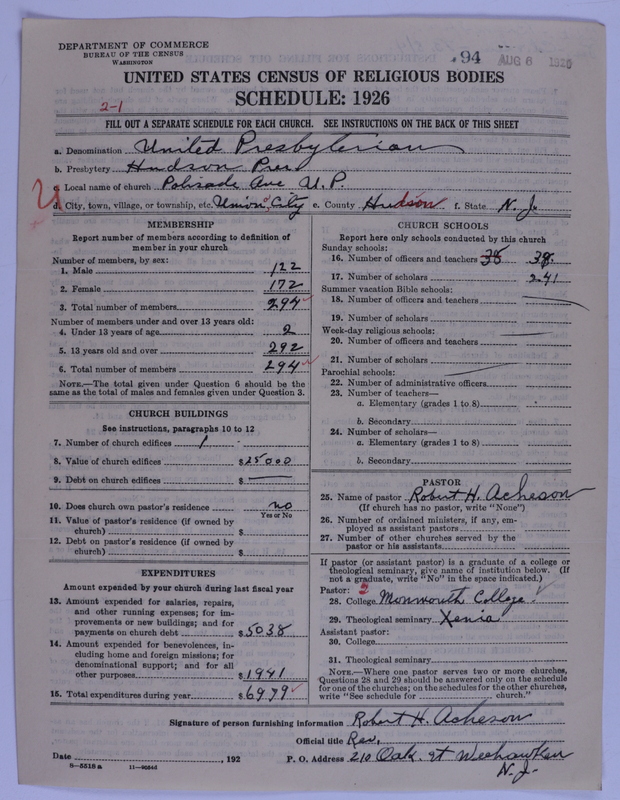 DEPARTMENT OF COMMERCE
BUREAU OF THE CENSUS
WASHINGTON
94 AUG 6 1926
UNITED STATES CENSUS OF RELIGIOUS BODIES
SCHEDULE: 1926
2-1
FILL OUT A SEPARATE SCHEDULE FOR EACH CHURCH. SEE INSTRUCTIONS ON THE BACK OF THIS SHEET
a. Denomination United Presbyterian
b. Presbytery Hudson Pres
c. Local name of church Palisade Ave U.P.
d. City, town, village, or township, etc. Union City e. County Hudson f. State N.J.
MEMBERSHIP
Report number of members according to definition of
member in your church
Number of members, by sex:
1. Male 122
2. Female 172
3. Total number of members 294
Number of members under and over 13 years old:
4. Under 13 years of age 2
5. 13 years old and over 292
6. Total number of members 294
NOTE.—The total given under Question 6 should be the
same as the total of males and females given under Question 3.
CHURCH BUILDINGS
See instructions, paragraphs 10 to 12
7. Number of church edifices 1
8. Value of church edifices $25000
9. Debt on church edifices $ —
10. Does church own pastor's residence no
Yes or No
11. Value of pastor's residence (if owned by
church) $
12. Debt on pastor's residence (if owned by
church) $
EXPENDITURES
Amount expended by your church during last fiscal year
13. Amount expended for salaries, repairs,
and other running expenses; for im-
provements or new buildings; and for
payments on church debt $5038
14. Amount expended for benevolences, in-
cluding home and foreign missions; for
denominational support; and for all
other purposes $1941
15. Total expenditures during year $6979
CHURCH SCHOOLS
Report here only schools conducted by this church
Sunday schools:
16. Number of officers and teachers 38 38
17. Number of scholars 241
Summer vacation Bible schools:
18. Number of officers and teachers
19. Number of scholars
Week-day religious schools:
20. Number of officers and teachers
21. Number of scholars
Parochial schools:
22. Number of administrative officers
23. Number of teachers—
a. Elementary (grades 1 to 8)
b. Secondary
24. Number of scholars—
a. Elementary (grades 1 to 8)
b. Secondary
PASTOR
25. Name of pastor Robert H. Acheson
(If church has no pastor, write "None")
26. Number of ordained ministers, if any, em-
ployed as assistant pastors
27. Number of other churches served by the
pastor or his assistants
If pastor (or assistant pastor) is a graduate of a college or
theological seminary, give name of institution below. (If
not a graduate, write "No" in the space indicated.)
Pastor: 3
28. College Monmouth College
29. Theological seminary Xenia
Assistant pastor:
30. College
31. Theological seminary
NOTE.—Where one pastor serves two or more churches,
Questions 28 and 29 should be answered only on the schedule
for one of the churches; on the schedules for the other churches,
write "See schedule for church."
Signature of person furnishing information Robert H. Acheson
Official title Rev.
Date , 192 P. O. Address 210 Oak. St Weehawken
N.J.
8—5518 a 11—9054d